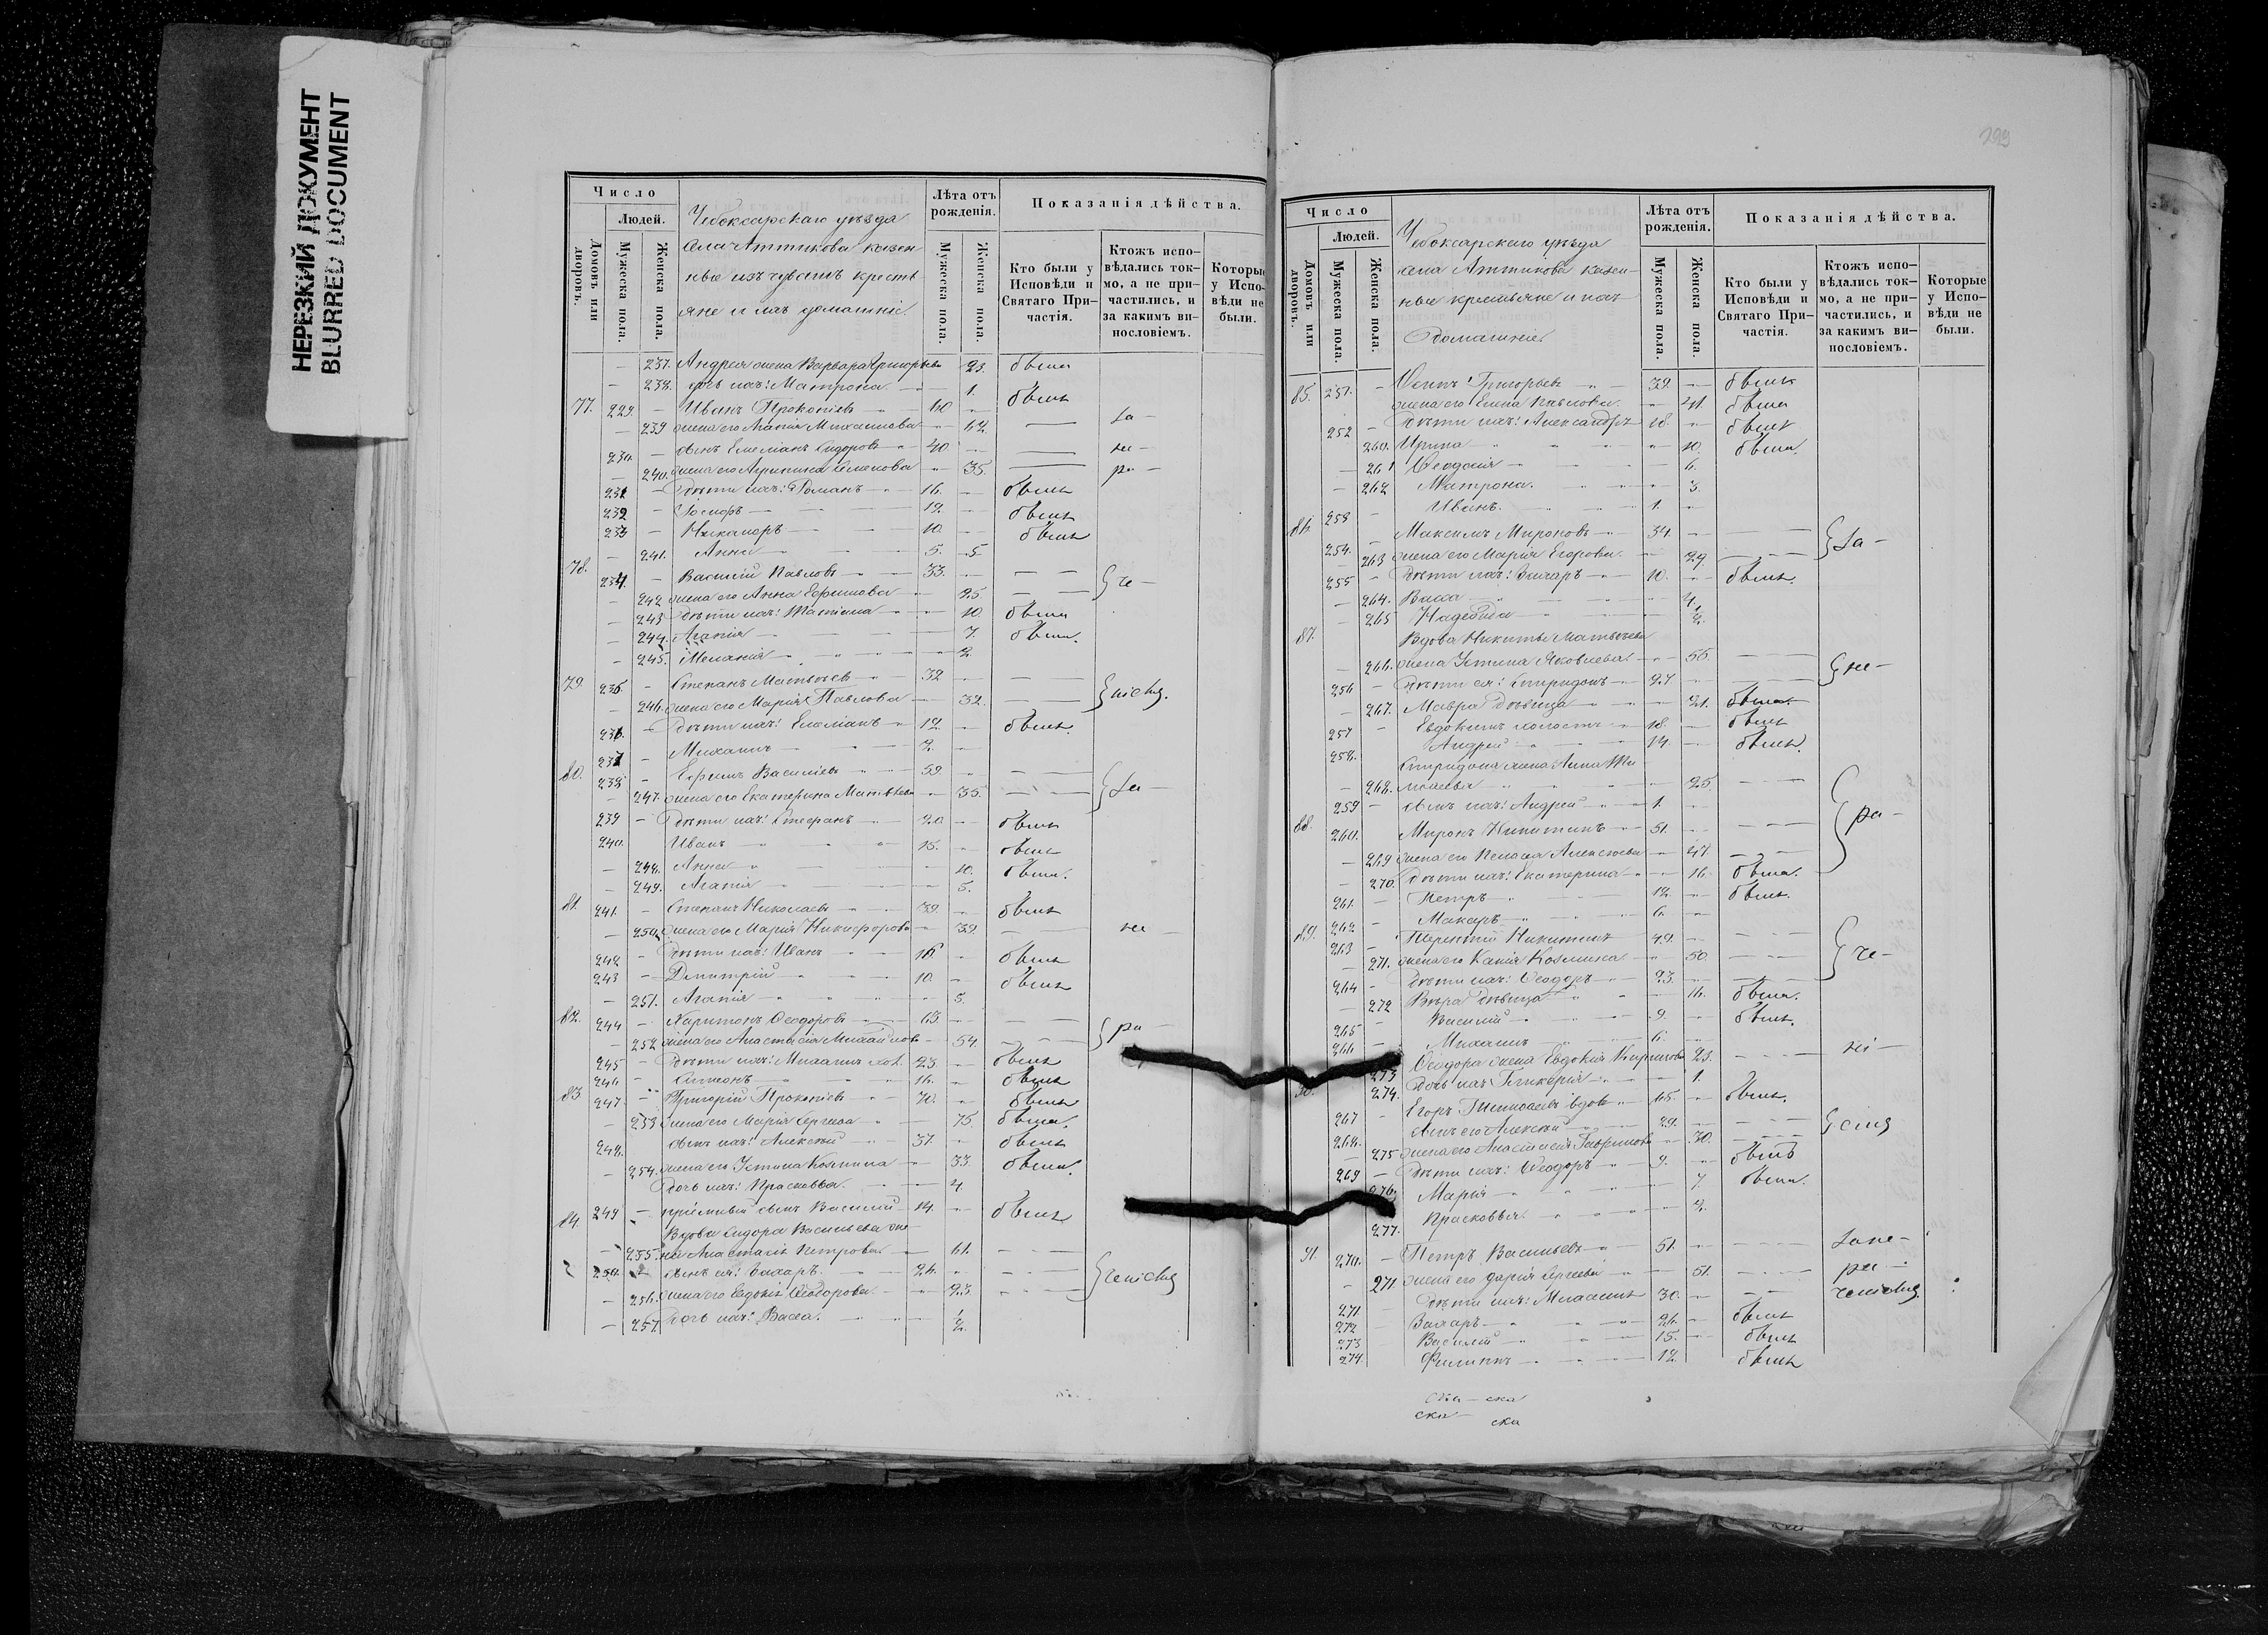 НЕРЕЗКИЙ ДОКУМЕНТ
BLURRED DOCUMENT
Число
Людей.
Домовъ или дворовъ.
Мужеска пола.
Женска пола.
Чебоксарскаго уѣзда
села Аттикова казен-
ные изъ чувашъ кресть
яне и ихъ домашніе.
Лѣта отъ рожденія.
Мужеска пола.
Женска пола.
Показанія дѣйства.
Кто были у Исповѣди и Святаго Причастія.
Ктожъ исповѣдались токмо, а не причастились, и за какимъ винословіемъ.
Которые у Исповѣди не были.
— 237. Андрея жена Варвара Григорьева 23. была
— 238. дочь ихъ: Матрона 1.
77. 229. — Иванъ Прокопіевъ 60 — былъ
— 239 жена его Агапія Михаилова — 62. — за —
230. сынъ Емеліанъ Сидоровъ 40. — не —
— 240. жена его Агрипина Семенова — 35. — ра —
231 — дѣти ихъ: Романъ 16. — былъ
232 — 12. — былъ
233 — Никаноръ 10. — былъ
— 241. Анна 5.
78. 234. — Василій Павловъ 33. — — че —
— 242 жена его Анна Ефимова 25. —
— 243 дѣти ихъ: Татіана 10. была
— 244. Агапія 7. была.
— 245. Меланія 2.
79. 235. — Степанъ Матвѣевъ 32 — — ніемъ.
— 246. жена его Марія Павлова — 32. —
236. — дѣти ихъ: Емеліанъ 12. — былъ.
237 — Михаилъ 2. —
80. 238 — Ефимъ Василіевъ 59. — — за —
— 247. жена его Екатерина Матвѣева — 35. —
239 — дѣти ихъ: Стефанъ 20. — былъ
240. Иванъ 15. — былъ
— 248. Анна 10. была.
— 249. Агапія 5.
81. 241. — Степанъ Николаевъ 39. — былъ
— 250. жена его Марія Никифорова — 39. — не —
242 — дѣти ихъ: Иванъ 16. — былъ
243 — Димитрій 10. — былъ
— 251. Агапія — 5.
82. 244 — Харитонъ Ѳеодоровъ 63 — — ра —
— 252 жена его Анастасія Михайлова — 54. —
245 — дѣти ихъ: Михаилъ хол. 23. — былъ
246 — Симеонъ 16. — былъ
83. 247. — Григорій Прокопіевъ 70. — былъ
— 253 жена его Марія Сергеева — 75. была.
248. сынъ ихъ: Алексѣй 37. — былъ
— 254. жена его Устина Козмина — 33. была.
дочь ихъ: Прасковья. 4.
249 — пріемный сынъ Василій 14. — былъ
84. Вдова Сидора Васильева же
— 255. на Анастасія Петрова — 61. —
250. — сынъ ея: Захаръ. 24. — — ченіемъ
— 256. жена его Евдокія Ѳеодорова. — 23. —
— 257. дочь ихъ: Васса. 1/2.
299
Число
Людей.
Домовъ или дворовъ.
Мужеска пола.
Женска пола.
Чебоксарскаго уѣзда
села Аттикова казен-
ные крестьяне и ихъ
домашніе
Лѣта отъ рожденія.
Мужеска пола.
Женска пола.
Показанія дѣйства.
Кто были у Исповѣди и Святаго Причастія.
Ктожъ исповѣдались токмо, а не причастились, и за какимъ винословіемъ.
Которые у Исповѣди не были.
85. 251. — Осипъ Григорьевъ 39. — былъ
жена его Елена Павлова. — 41. была
252 — дѣти ихъ: Александръ 18. — былъ
260. Ирина — 10. была.
— 261 Ѳеодосія — 6.
— 262 Матрона. — 3.
253 — Иванъ. 1. —
86. 254. — Максимъ Мироновъ 34. — — за —
— 263 жена его Марія Егорова. — 29. —
255 — дѣти ихъ: Захаръ 10. — былъ.
— 264. Васса 4.
— 265 Надежда — 2.
87. Вдова Никиты Матвѣева
— 266. жена Устина Яковлева. — 56. — не —
256 — дѣти ея: Спиридонъ 27 —
— 267. Мавра дѣвица — 21. была.
257 — Евдокимъ холостъ 18. — былъ
258. Андрей 14. — былъ.
Спиридона жена Анна Ти
— 268. моѳеева — 25. —
259 — сынъ ихъ: Андрей 1. —
88. 260. Миронъ Никитинъ 51. — — ра —
— 269 жена его Пелагея Алексѣева — 47. —
— 270. дѣти ихъ: Екатерина — 16. была.
261. — Петръ 12. — былъ.
262 — Макаръ 6. —
89. 263 — Терентій Никитинъ 49. — — че —
— 271. жена его Ксенія Козмина — 50. —
264 — дѣти ихъ: Ѳеодоръ 23. —
— 272 Вѣра дѣвица — 16. была.
265 — Василій 9. — былъ.
266 — Михаилъ 6. —
273 Ѳеодора жена Евдокія Кирилова 23. — ні —
274. дочь ихъ Гликерія — 1.
90. 267 — Егоръ Тимоѳеевъ вдов. 65. — былъ.
268. сынъ его Алексѣй 29. — — емъ
— 275 жена его Анастасія Гаврилова — 30. —
269 — дѣти ихъ: Ѳеодоръ 9. — былъ
276. Марія — 7 была.
277. Прасковья. — 2.
91. 270. — Петръ Васильевъ 51. — — за не —
— 271 жена его Дарія Сергеева — 51. — ра —
271 дѣти ихъ: Михаилъ 30. — — ченіемъ
272 Захаръ 26. — былъ
273 Василій 15. — былъ
274. Филиппъ 12. былъ
ска
ска
ска